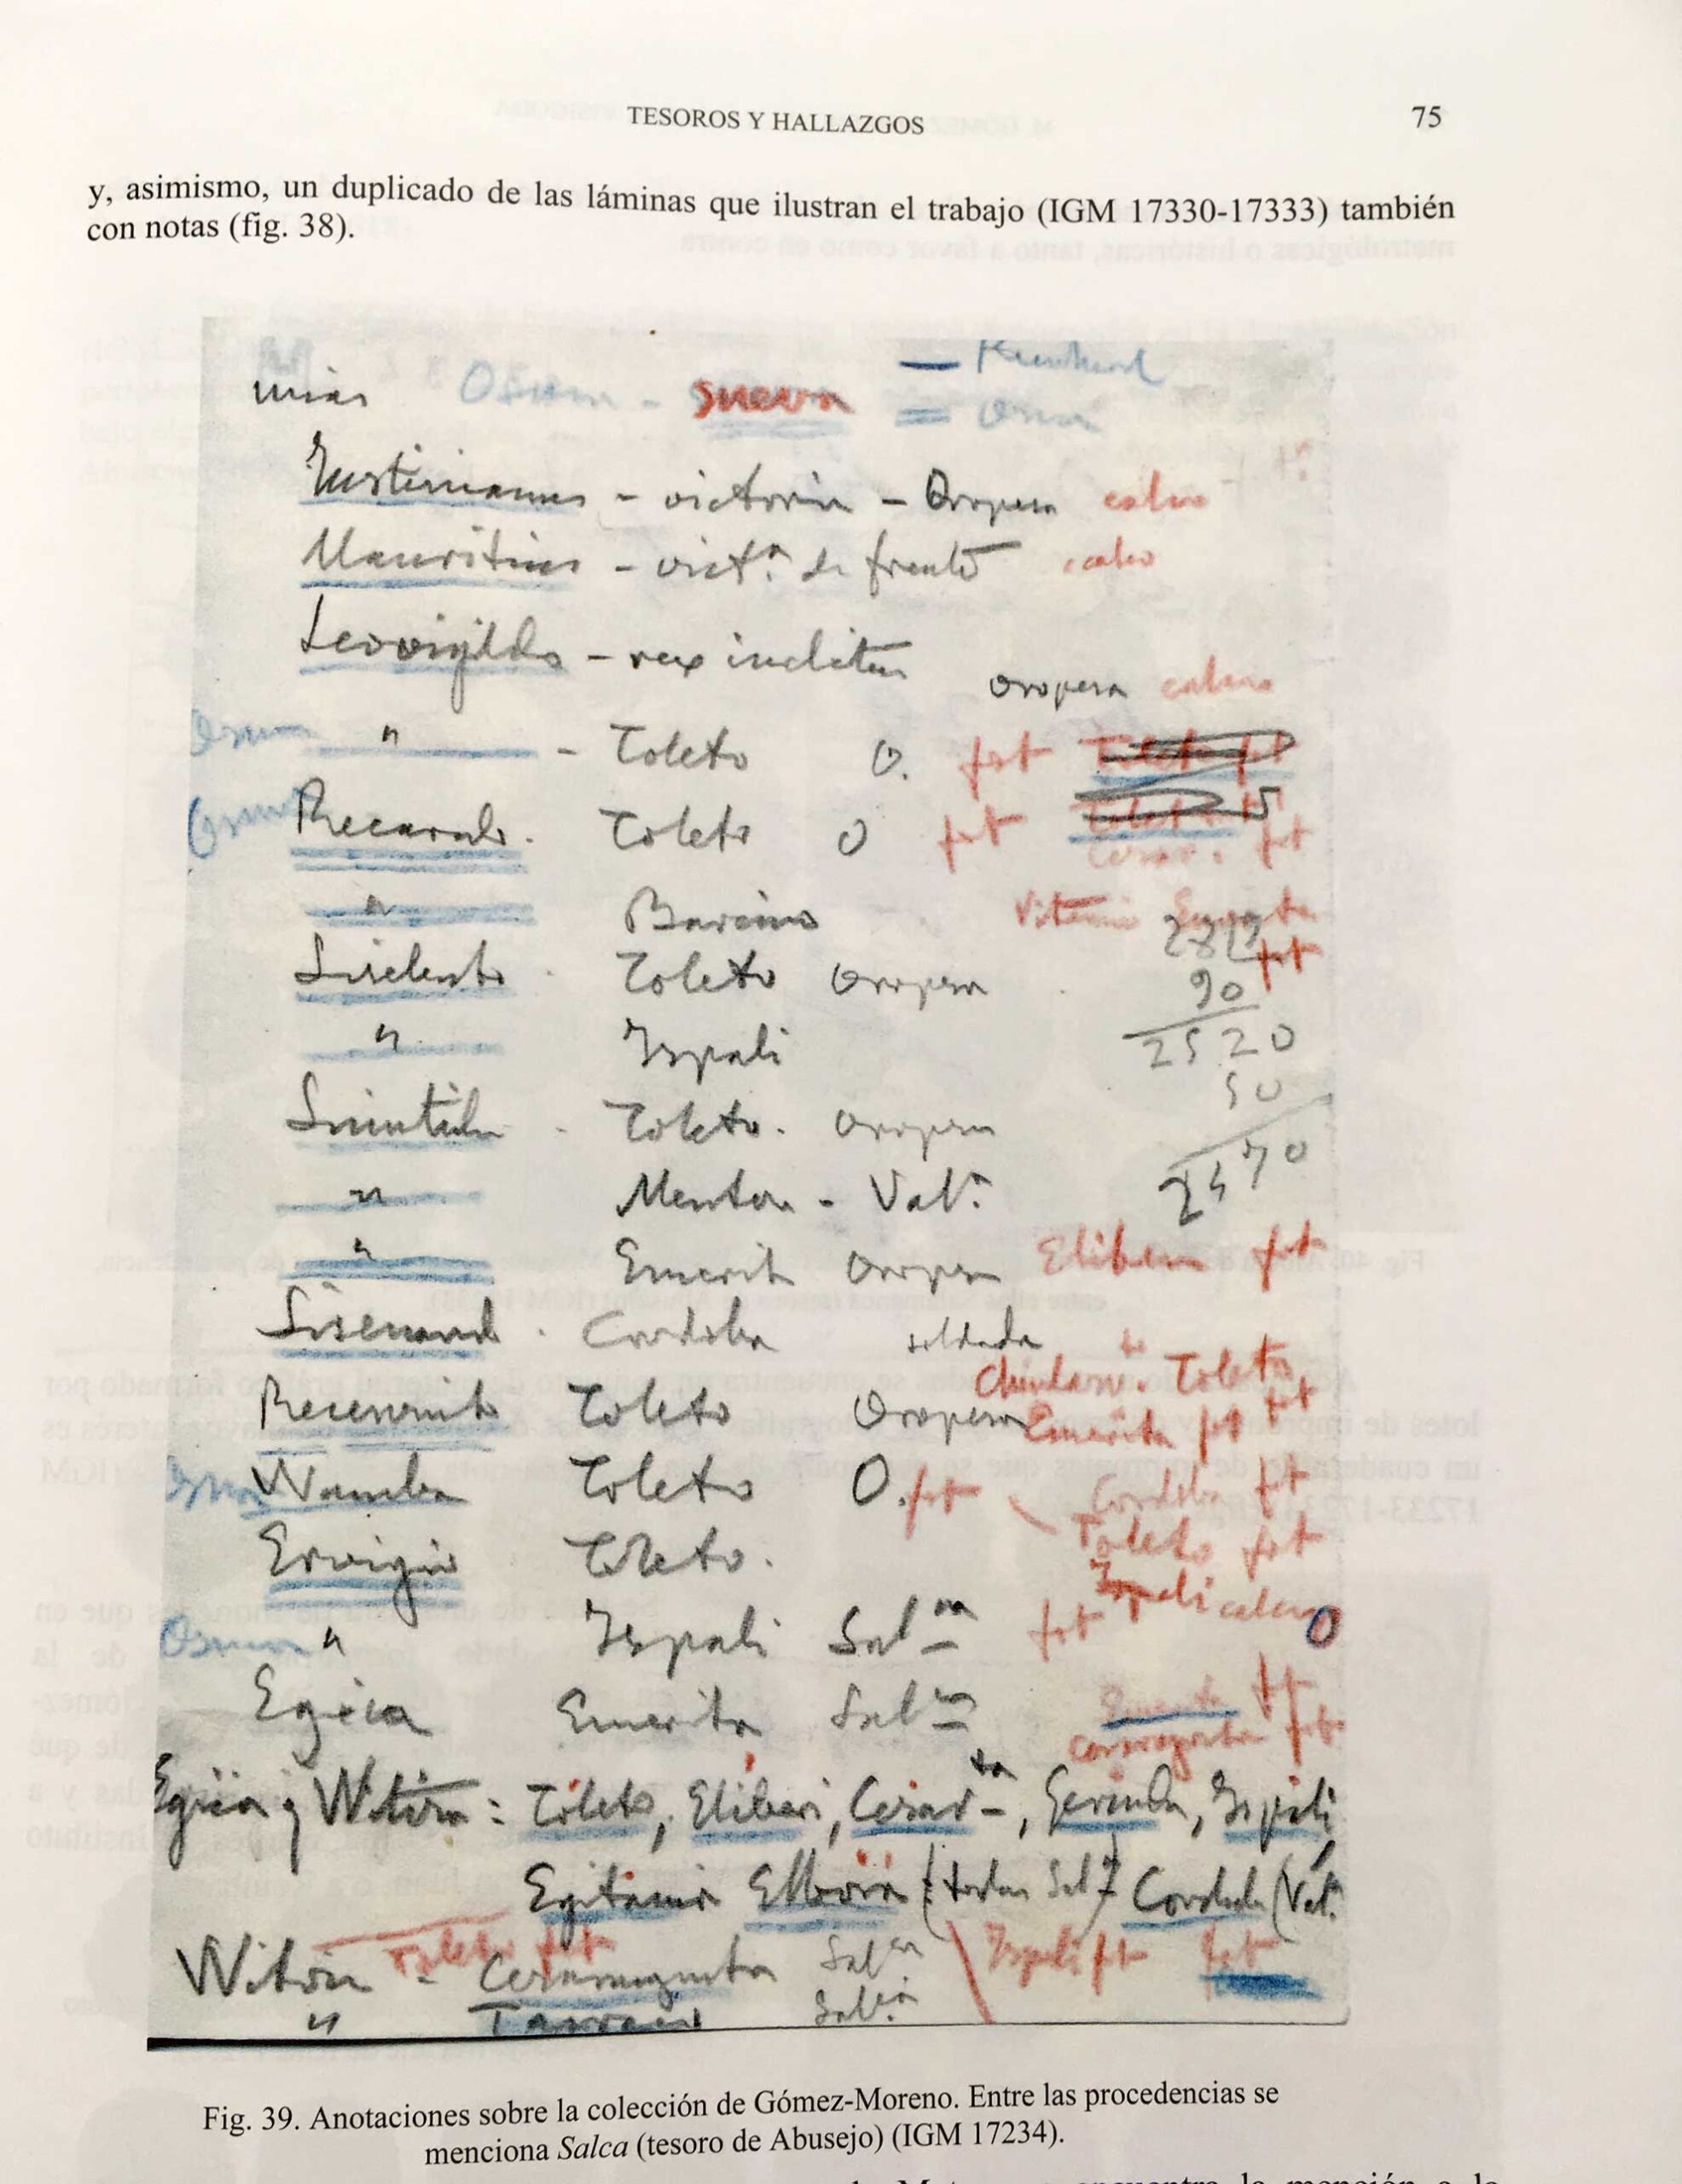 TESOROS Y HALLAZGOS 75
y, asimismo, un duplicado de las láminas que ilustran el trabajo (IGM 17330-17333) también
con notas (fig. 38).
mias Osuna - sueva = Osuna
Justinianus - victoria - Oropesa calco
Mauritius - vict.ª de frente calco
Leovigildo - rex inclitus
oropesa calco
Osuna " - Toleto O. fot
Osuna Recaredo. Toleto O fot
Cesar. fot
" Barcino
Toleto Oropesa fot
90
" Ispali 2520
50
Suintila - Toleto. Oropesa
2470
" Mentesa - Val.ª
" Emerita Oropesa Eliberi fot
Sisenand. Cordoba soldada
Chindasv. Toleto fot
Recesvinto Toleto Oropesa Emerita fot
Osuna Wamba Toleto O. fot Cordoba fot
Toleto fot
Ervigio Toleto.
Ispali calco O
Osuna " Ispali Sal.ca fot
Egica Emerita Sal.ca Emerita fot
Cesaragusta fot.
Egica y Witiza: Toleto, Eliberi, Cesar-ta, Gerunda, Ispali
Egitania Elbora (todas Sal.ca) Cordoba (Val.
Witiza - Toleto fot Cesaragusta Sal.ca Ispali fot fot
" Tarraco Sal.ca
Fig. 39. Anotaciones sobre la colección de Gómez-Moreno. Entre las procedencias se
menciona Salca (tesoro de Abusejo) (IGM 17234).